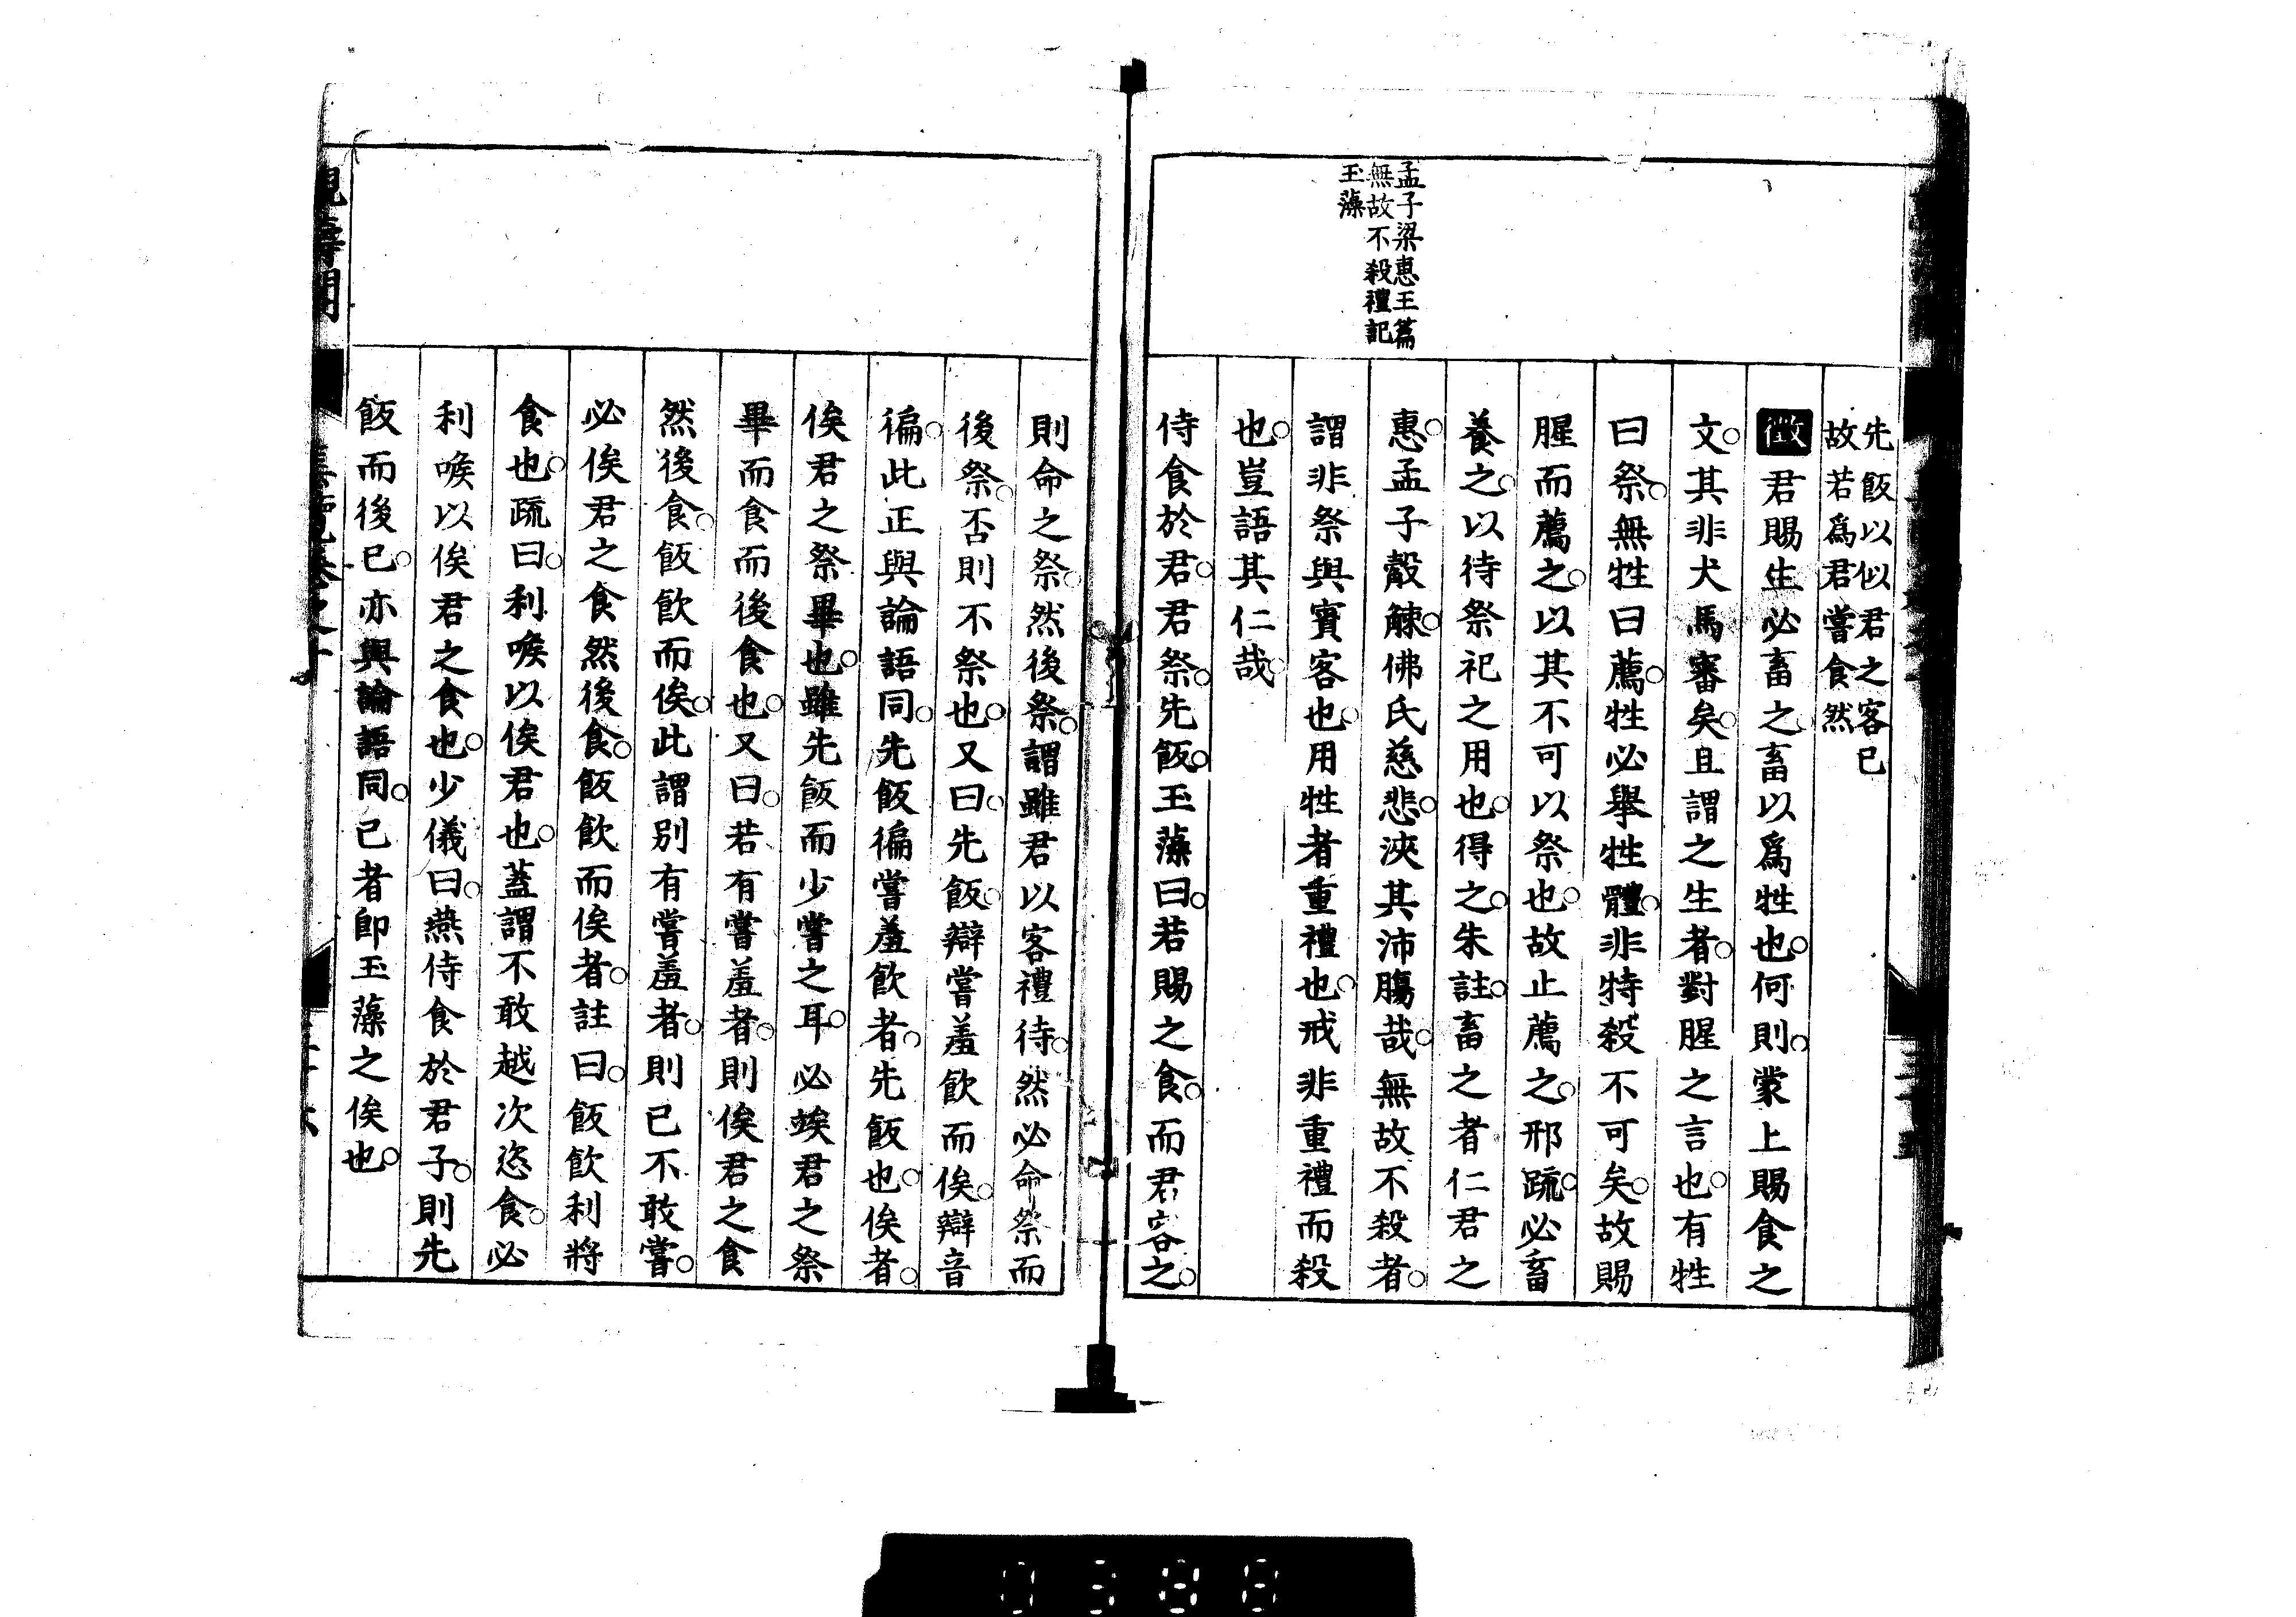 孟子梁惠王篇
無故不殺禮記
玉藻
先飯以似君之客已
故若爲君嘗食然
徵君賜生必畜之畜以爲牲也何則蒙上賜食之
文其非犬馬審矣且謂之生者對腥之言也有牲
曰祭無牲曰薦牲必舉牲體非特殺不可矣故賜
腥而薦之以其不可以祭也故止薦之邢疏必畜
養之以待祭祀之用也得之朱註畜之者仁君之
惠孟子觳觫佛氏慈悲浹其沛膓哉無故不殺者
謂非祭與賓客也用牲者重禮也戒非重禮而殺
也豈語其仁哉
侍食於君君祭先飯玉藻曰若賜之食而君客之
則命之祭然後祭謂雖君以客禮待然必命祭而
後祭否則不祭也又曰先飯辯嘗羞飲而俟辯音
徧此正與論語同先飯徧嘗羞飲者先飯也俟者
俟君之祭畢也雖先飯而少嘗之耳必竢君之祭
畢而食而後食也又曰若有嘗羞者則俟君之食
然後食飯飲而俟此謂別有嘗羞者則已不敢嘗
必俟君之食然後食飯飲而俟者註曰飯飲利將
食也疏曰利喉以俟君也蓋謂不敢越次恣食必
利喉以俟君之食也少儀曰燕侍食於君子則先
飯而後已亦與論語同已者卽玉藻之俟也